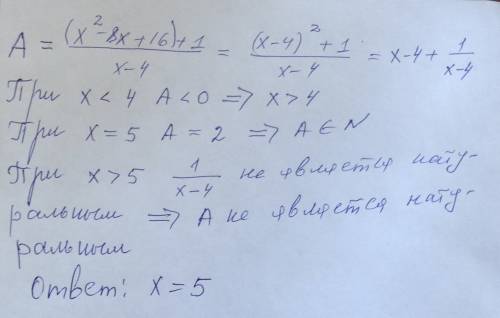 A = ((x²-8x+16)+1)/(x-4) = ((x-4)²+1)/(x-4) = x-4+1/(x-4)
При x<4 A<0 ⇒ x>4
При x=5 A=2 ⇒ A∈N
При x>5 1/(x-4) не является нату-
ральным ⇒ A не является нату-
ральным
Ответ: x=5